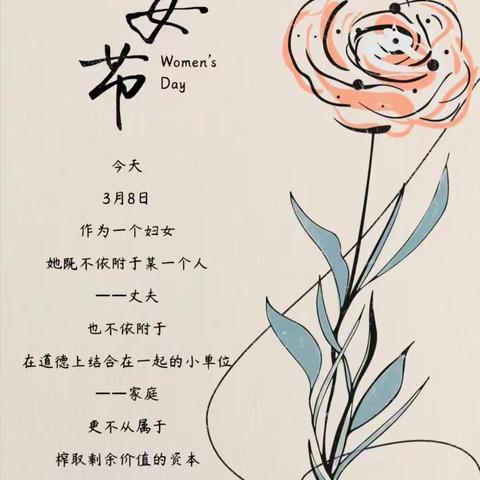 女
节
Women's
Day
今天
3月8日
作为一个妇女
她既不依附于某一个人
——丈夫
也不依附于
在道德上结合在一起的小单位
——家庭
更不从属于
榨取剩余价值的资本